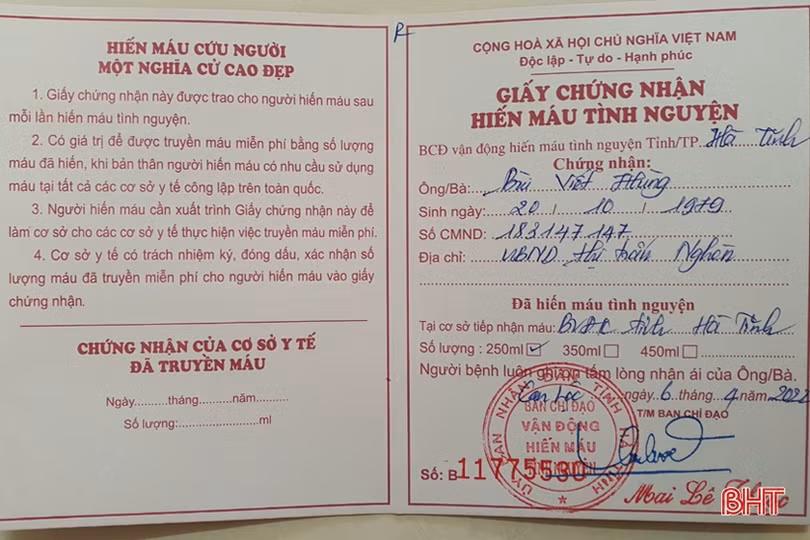 HIẾN MÁU CỨU NGƯỜI
MỘT NGHĨA CỬ CAO ĐẸP
1. Giấy chứng nhận này được trao cho người hiến máu sau
mỗi lần hiến máu tình nguyện.
2. Có giá trị để được truyền máu miễn phí bằng số lượng
máu đã hiến, khi bản thân người hiến máu có nhu cầu sử dụng
máu tại tất cả các cơ sở y tế công lập trên toàn quốc.
3. Người hiến máu cần xuất trình Giấy chứng nhận này để
làm cơ sở cho các cơ sở y tế thực hiện việc truyền máu miễn phí.
4. Cơ sở y tế có trách nhiệm ký, đóng dấu, xác nhận số
lượng máu đã truyền miễn phí cho người hiến máu vào giấy
chứng nhận.
CHỨNG NHẬN CỦA CƠ SỞ Y TẾ
ĐÃ TRUYỀN MÁU
Ngày..........tháng..........năm..........
Số lượng:..........................ml
R
CỘNG HOÀ XÃ HỘI CHỦ NGHĨA VIỆT NAM
Độc lập - Tự do - Hạnh phúc
GIẤY CHỨNG NHẬN
HIẾN MÁU TÌNH NGUYỆN
BCĐ vận động hiến máu tình nguyện Tỉnh/TP. Hà Tĩnh
Chứng nhận:
Ông/Bà: Bùi Việt Hùng
Sinh ngày: 20 / 10 / 1979
Số CMND: 183147147
Địa chỉ: UBND Thị trấn Nghèn
Đã hiến máu tình nguyện
Tại cơ sở tiếp nhận máu: BVĐK tỉnh Hà Tĩnh
Số lượng : 250ml ✓ 350ml 450ml
Người bệnh luôn ghi ơn tấm lòng nhân ái của Ông/Bà.
Can Lộc ngày 6 tháng 4 năm 2022
T/M BAN CHỈ ĐẠO
BAN CHỈ ĐẠO
VẬN ĐỘNG
HIẾN MÁU
ỦY BAN NHÂN DÂN TỈNH HÀ TĨNH
Số: B 11775530
Mai Lê
BHT